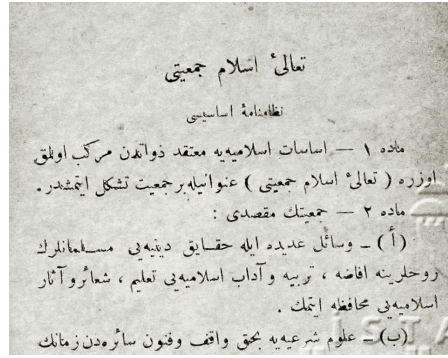 تعالیٔ اسلام جمعیتی
نظامنامهٔ اساسیسی
ماده ۱ — اساسات اسلامیه‌یه معتقد ذواتدن مرکب اولمق
اوزره ( تعالیٔ اسلام جمعیتی ) عنوانیله بر جمعیت تشکل ایتمشدر .
ماده ۲ — جمعیتك مقصدی :
(أ) ـ وسائل عدیده ایله حقـایق دینیه‌یی مسـلمانلرك
روحلرینه افاضه ، تربیه و آداب اسلامیه‌یی تعلیم ، شعائر و آثار
اسلامیه‌یی محافظه ایتمك .
(ب) ـ علوم شرعیه‌یه بحق واقف وفنون سائره‌دن زمانك